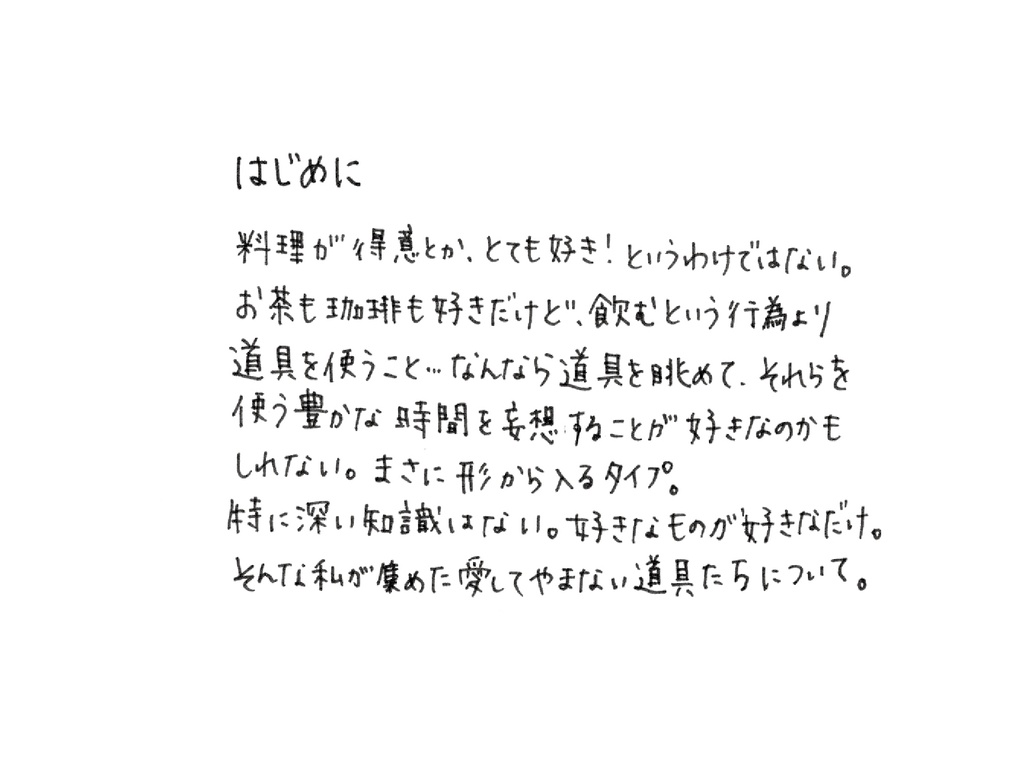 はじめに
料理が得意とか、とても好き！というわけではない。
お茶も珈琲も好きだけど、飲むという行為より
道具を使うこと…なんなら道具を眺めて、それらを
使う豊かな時間を妄想することが好きなのかも
しれない。まさに形から入るタイプ。
特に深い知識はない。好きなものが好きなだけ。
そんな私が集めた愛してやまない道具たちについて。